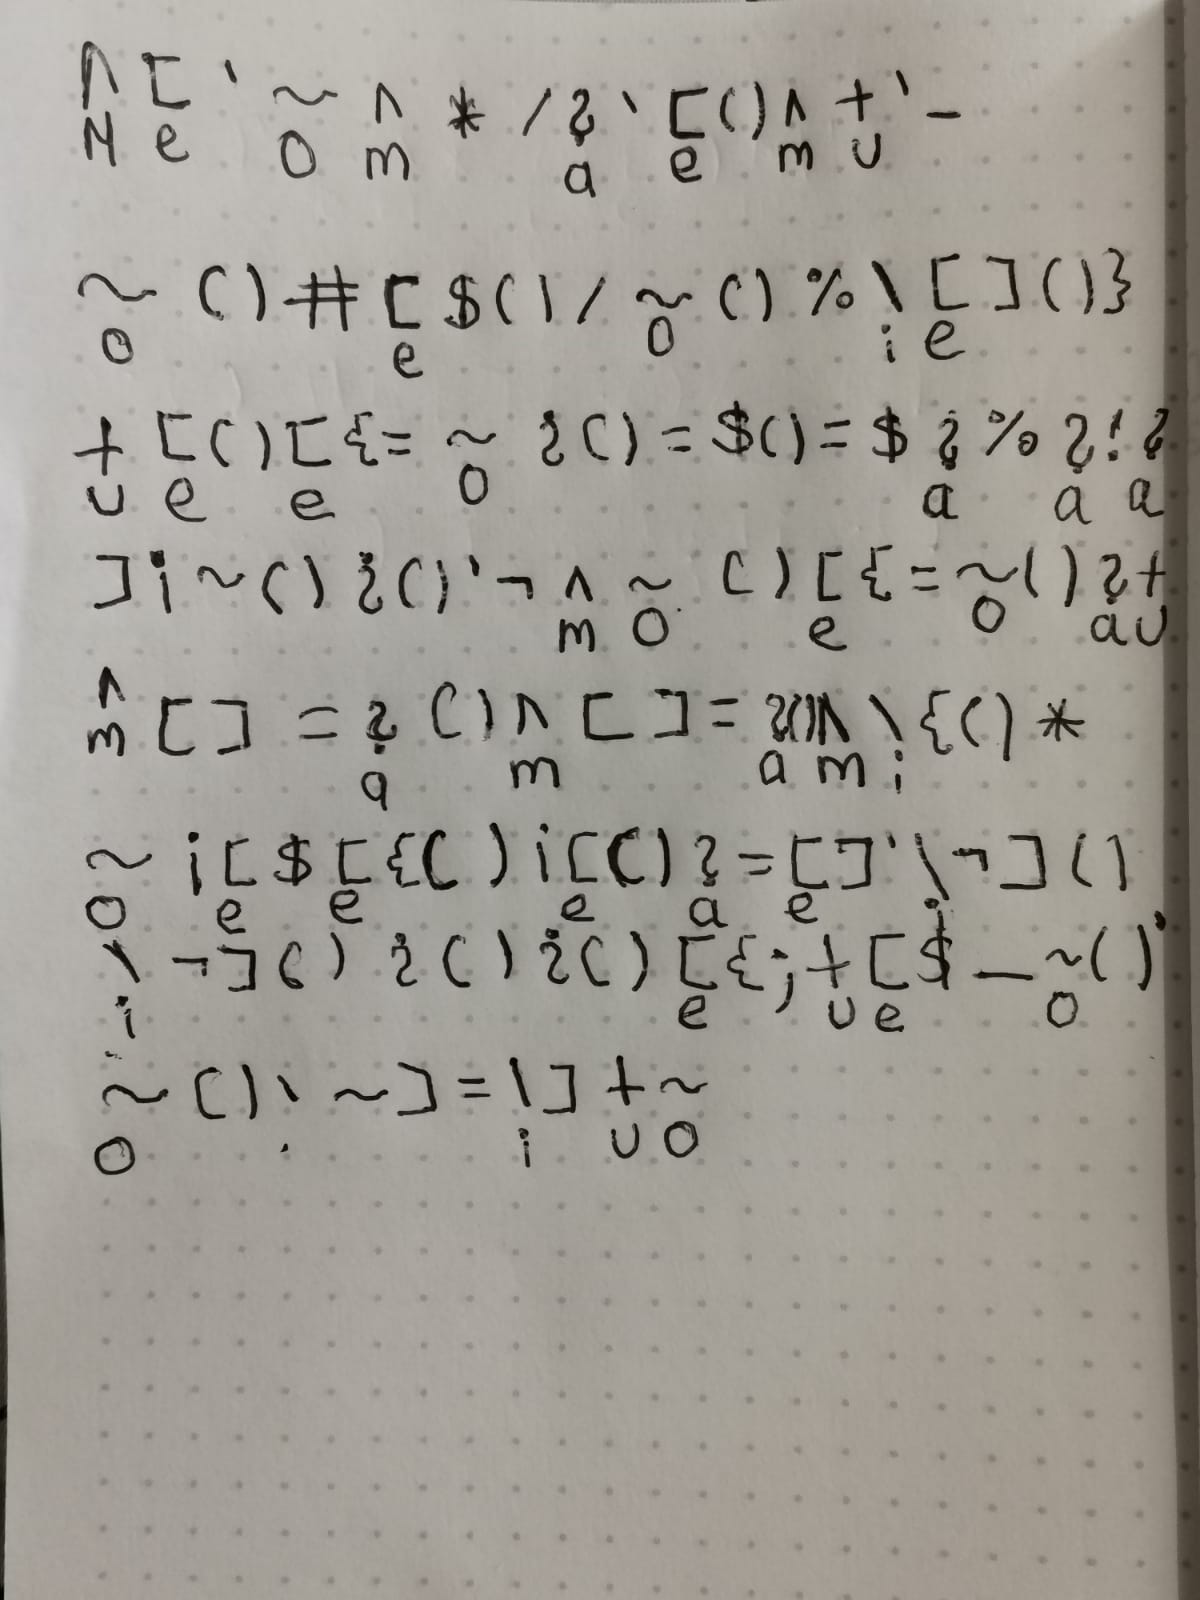 ^ [ ' ~ ^ * / ? ` [ ( ) ^ + ' -
M e o m a e m u
~ ( ) # [ $ ( ) / ~ ( ) % \ [ ] ( ) }
o e o i e
+ [ ( ) [ { = ~ ¿ ( ) = $ ( ) = $ ? % ? ! ?
u e e o a a a
] ¡ ~ ( ) ¿ ( ) ' ¬ ^ ~ ( ) [ { = ~ ( ) ? +
m o e o a u
^ [ ] = ? ( ) ^ [ ] = ? ^ \ { ( ) *
m a m a m i
~ ¡ [ $ [ { ( ) ¡ [ ( ) ? = [ ] ' \ ¬ ] ( )
o e e e a e i
\ ¬ ] ( ) ¿ ( ) ¿ ( ) [ { ; + [ $ _ ~ ( ) '
i e u e o
~ ( ) ` ~ ] = \ ] + ~
o i u o